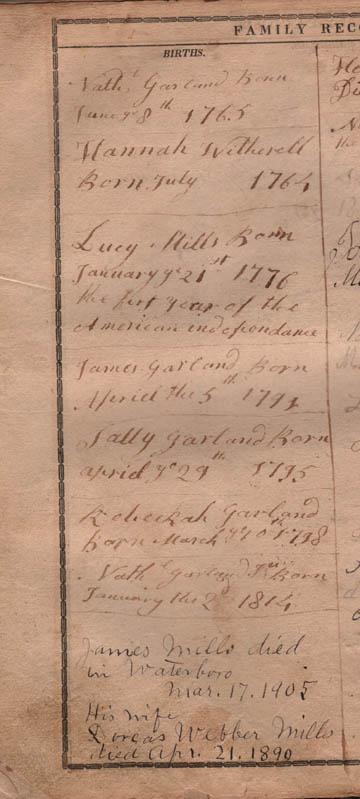 FAMILY RECO
BIRTHS.
Nathl Garland Born
June ye 8th 1765
Hannah Witherell
Born July 1764
Lucy Mills Born
January ye 21st 1776
the first year of the
American independance
James Garland Born
Apriel the 5th 1791
Sally Garland Born
april ye 29th 1795
Rebeckah Garland
Born March ye 10th 1798
Nathl Garland Jur Born
January the 2 1814
James Mills died
in Waterboro
Mar. 17. 1905
His wife
Dorcas Webber Mills
died Apr. 21. 1890